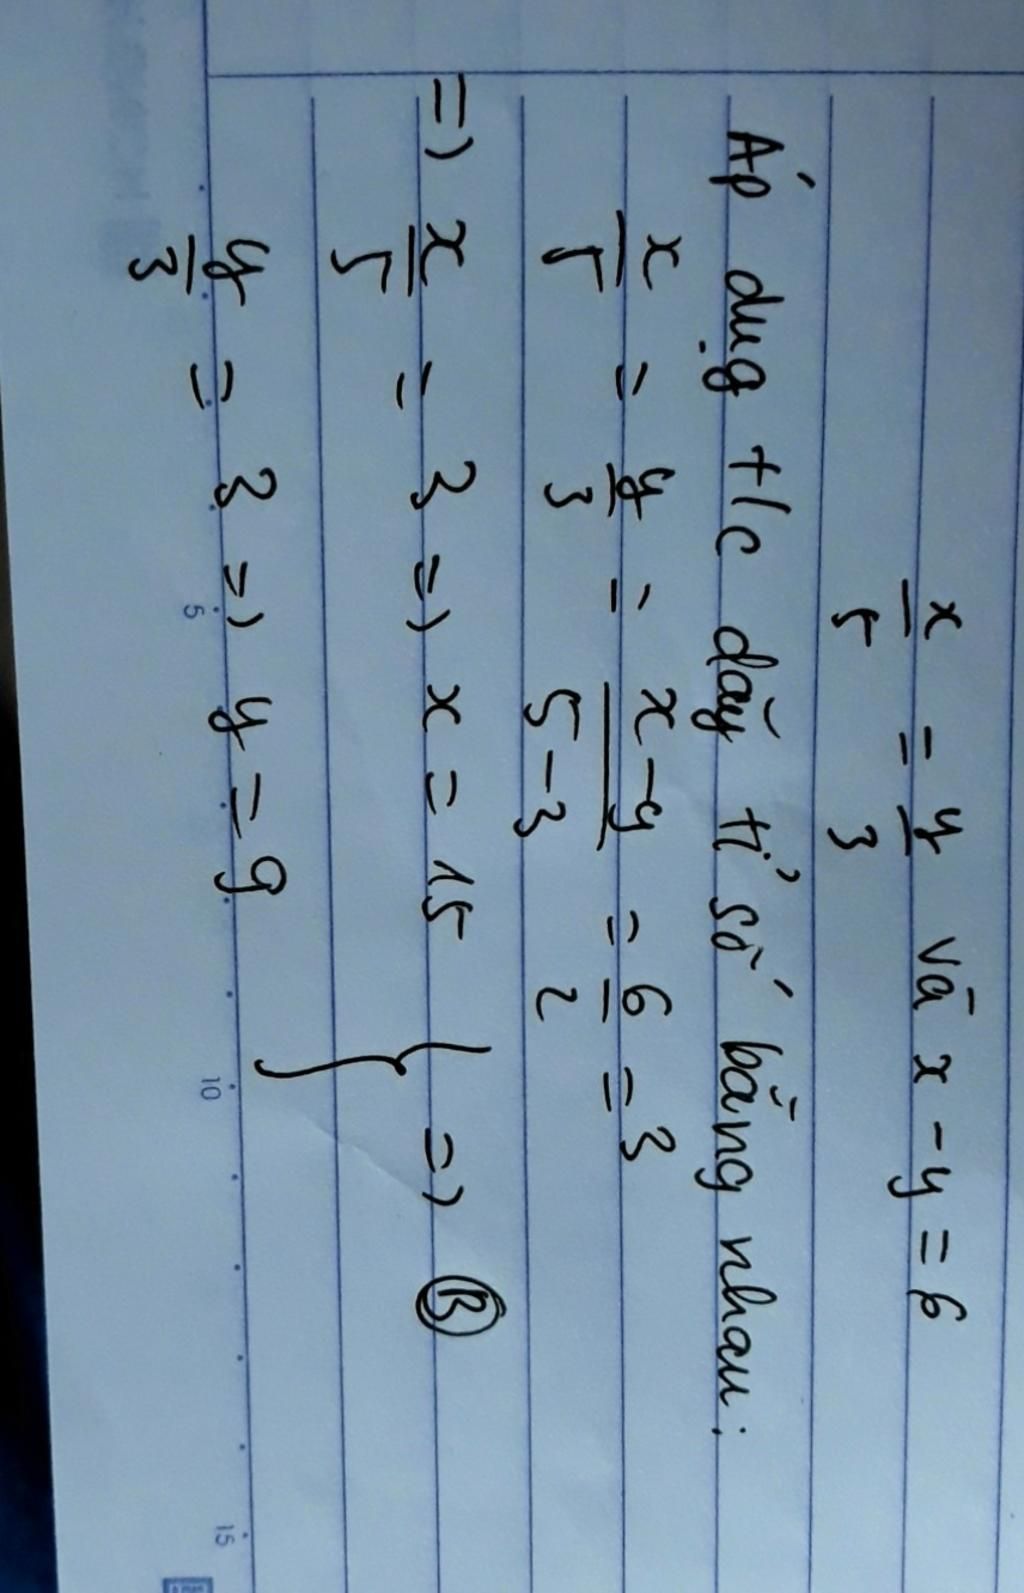 x/5 = y/3 và x - y = 6
Áp dụg t/c dãy tỉ số bằng nhau:
x/5 = y/3 = x-y/5-3 = 6/2 = 3
=> x/5 = 3 => x = 15
y/3 = 3 => y = 9
} => B
5
10
15